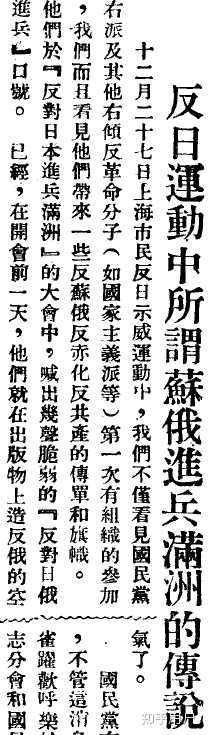 反日運動中所謂蘇俄進兵滿洲的傳說
十二月二十七日上海市民反日示威運動中,我們不僅看見國民黨
右派及其他右傾反革命分子(如國家主義派等)第一次有組織的參加
,我們而且看見他們帶來一些反蘇俄反赤化反共產的傳單和旗幟。
他們於『反對日本進兵滿洲』的大會中,喊出幾聲脆弱的『反對日俄
進兵』口號。 已經,在開會前一天,他們就在出版物上造反俄的空
氣了。
國民黨
,不管這消
雀躍歡呼樂
志分會和國
知乎